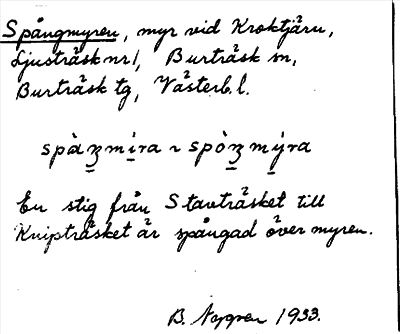 Spångmyren, myr vid Kroktjärn,
Ljusträsk nr 1, Burträsk sn,
Burträsk tg, Västerb. l.
spàʒmìra ~ spòʒmýra
En stig från Stavträsket till
Knipträsket är spångad över myren.
B. Nygren 1933.